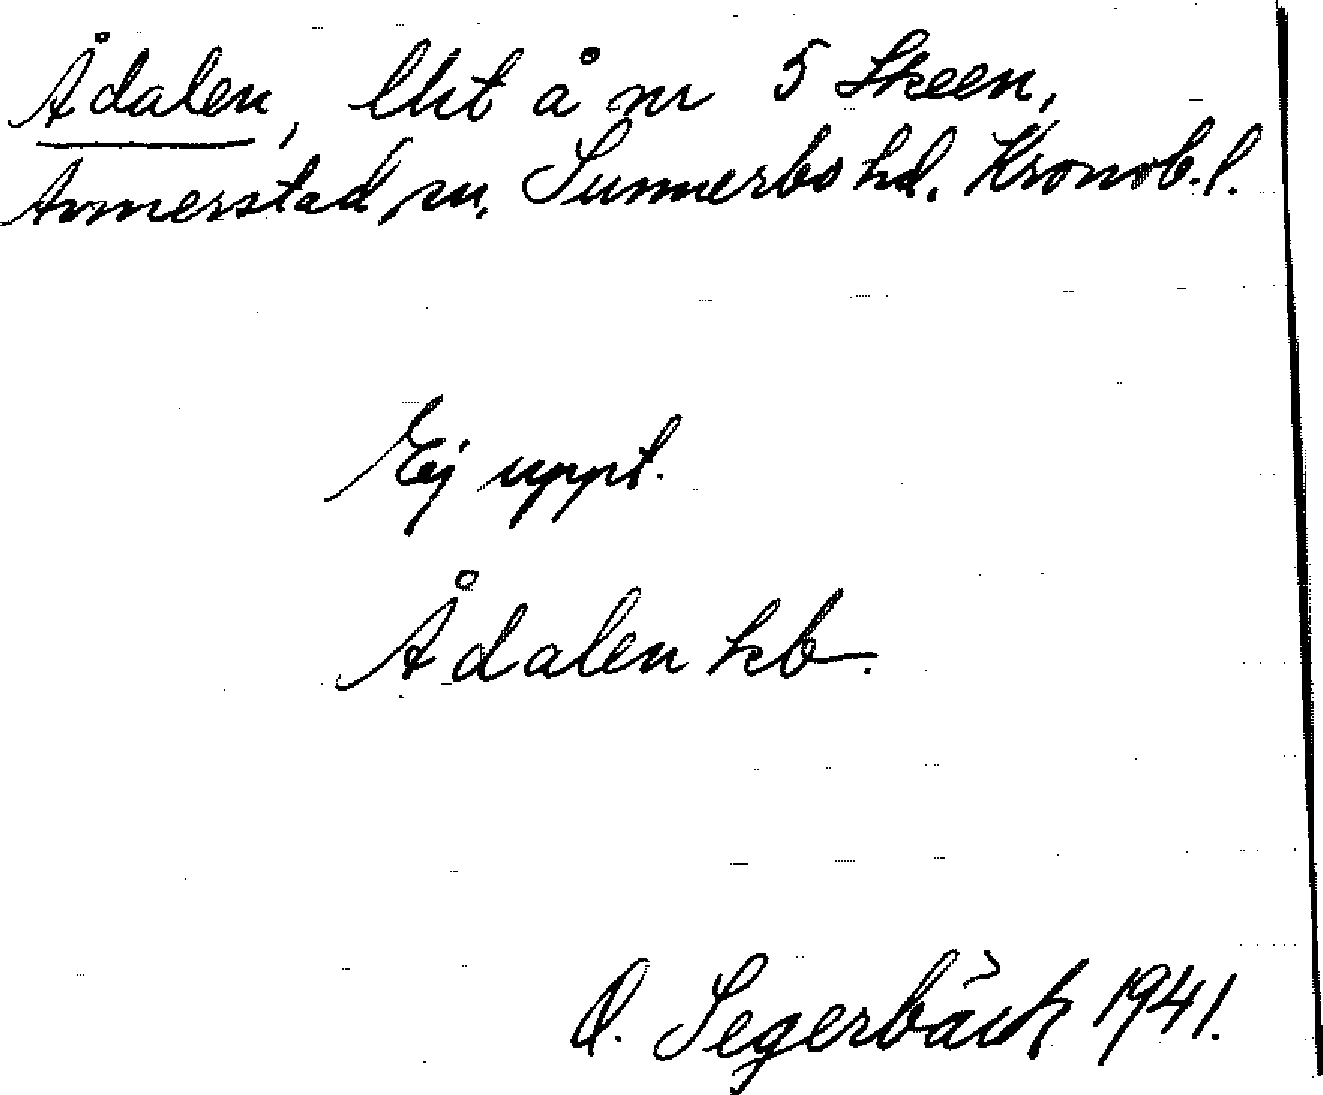 Ådalen, lht å nr 5 Skeen,
Annerstad sn. Sunnerbo hd. Kronob. l.
Ej uppt.
Ådalen kb.
O. Segerbäck 1941.